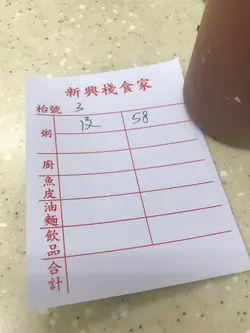 新興棧食家
枱號 3
粥 皮 58
廚
魚皮
油麵
飲品
合計